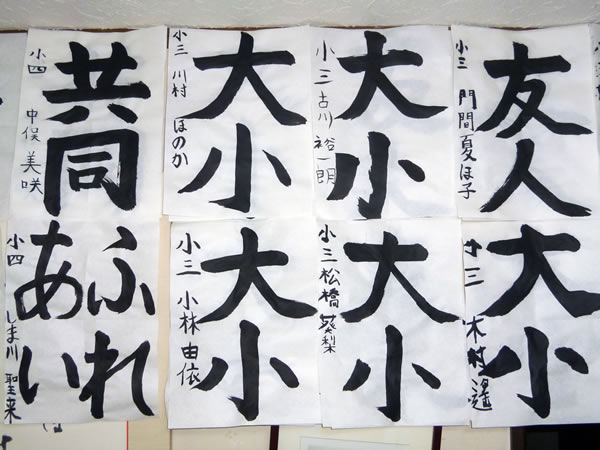 共同
小四 中俣 美咲
大小
小三 川村 ほのか
大小
小三 古川 裕一朗
友人
小三 門間 夏ほ子
ふれあい
小四 しま川 聖来
大小
小三 小林 由依
大小
小三 松橋 葵梨
大小
小三 木村